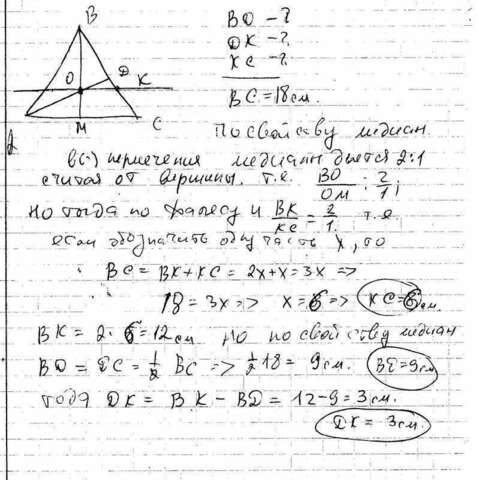 B
O D K
A M C
BD - ?
DK - ?
KC - ?
BC = 18 см.
По свойству медиан
в (·) пересечения медианы делятся 2:1
считая от вершины, т.е. BO/OM = 2/1;
Но тогда по Фалесу и BK/KC = 2/1. т.е
если обозначить одну часть x, то
BC = BK + KC = 2x + x = 3x =>
18 = 3x => x = 6 => KC = 6 см.
BK = 2·6 = 12 см но по свойству медиан
BD = DC = 1/2 BC => 1/2 18 = 9 см. BD = 9 см
тогда DK = BK - BD = 12 - 9 = 3 см.
DK = 3 см.